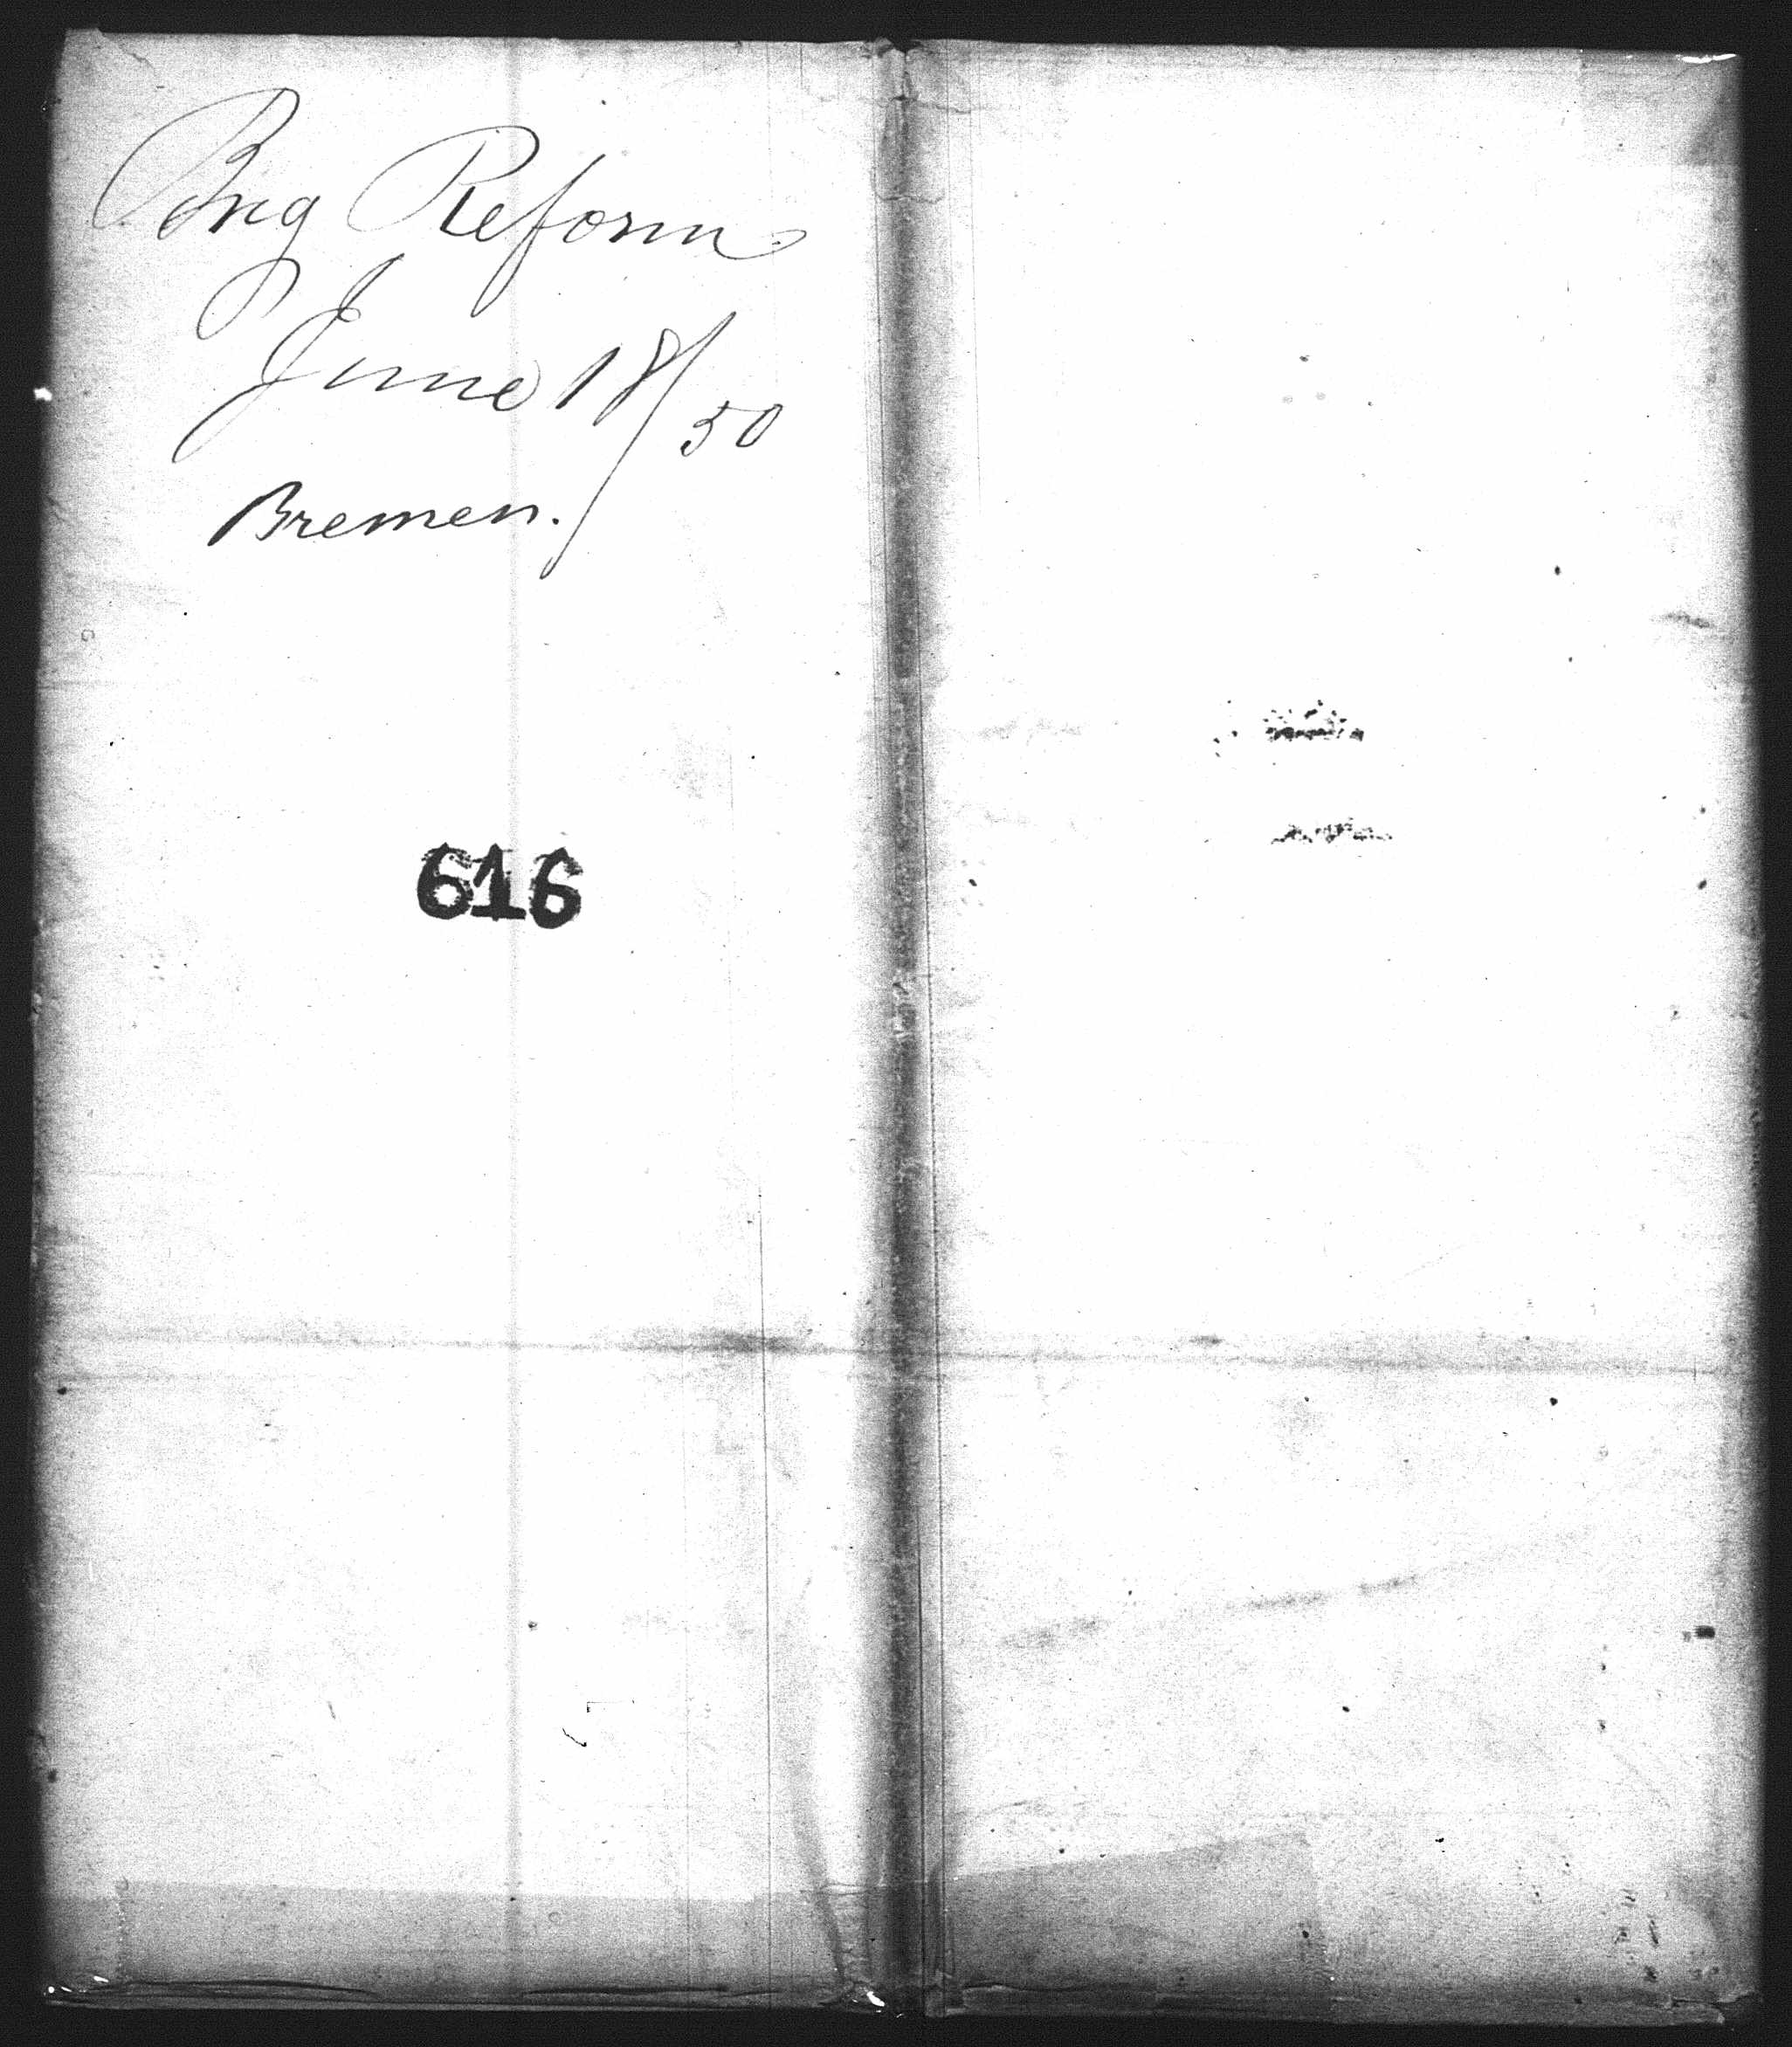 Brig Reform
June 18/50
Bremen.
616